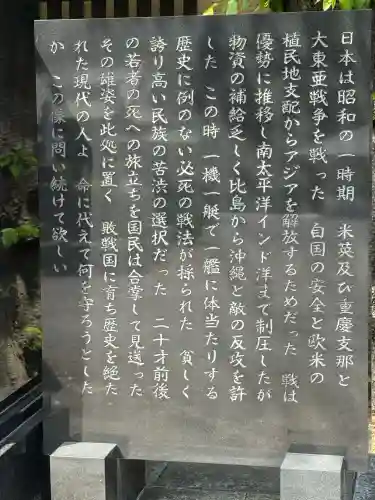 日本は昭和の一時期　米英及び重慶支那と
大東亜戦争を戦った　自国の安全と欧米の
植民地支配からアジアを解放するためだった　戦は
優勢に推移し南太平洋インド洋まで制圧したが
物資の補給乏しく比島から沖縄と敵の反攻を許
した　この時　一機一艇で一艦に体当たりする
歴史に例のない必死の戦法が採られた　貧しく
誇り高い民族の苦渋の選択だった　二十才前後
の若者の死への旅立ちを国民は合掌して見送った
その雄姿を此処に置く　敗戦国に育ち歴史を絶た
れた現代の人よ　命に代えて何を守ろうとした
か　この像に問い続けて欲しい